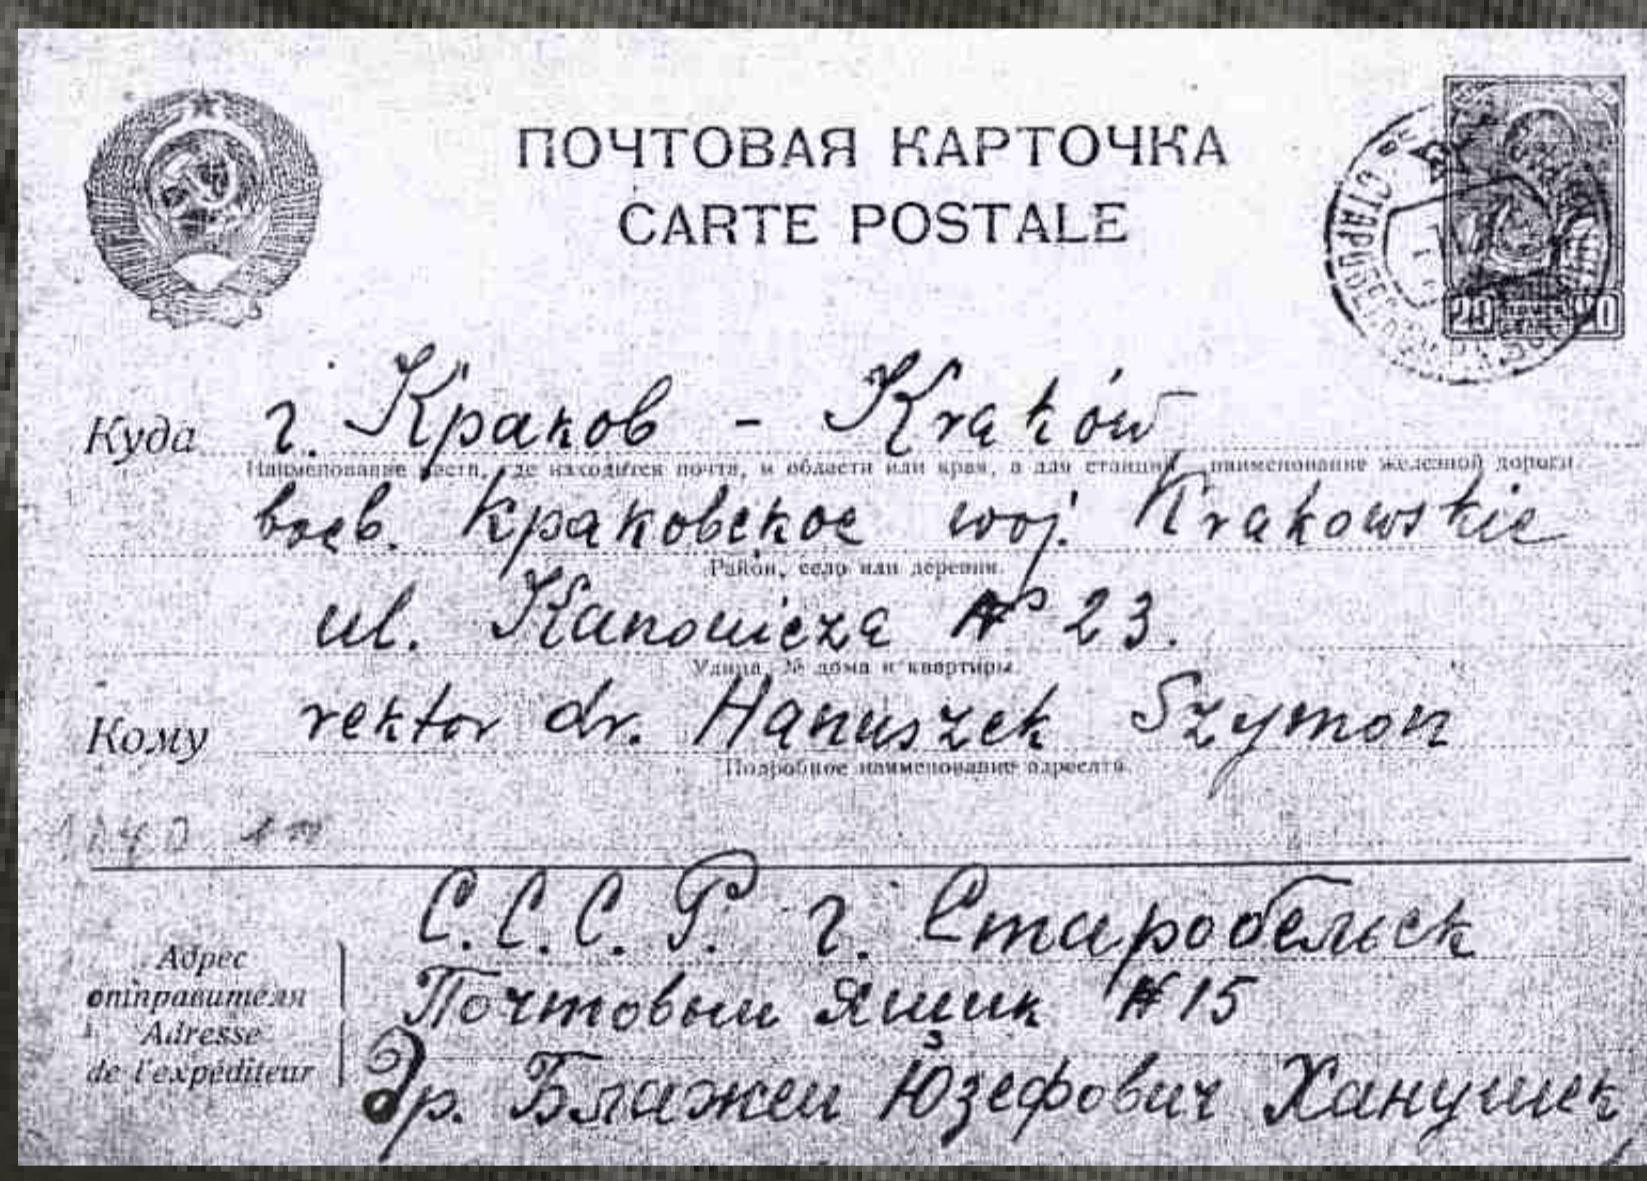 ПОЧТОВАЯ КАРТОЧКА
CARTE POSTALE
20
Куда г. Краков - Kraków
Наименование места, где находится почта, и области или края, а для станции наименование железной дороги
воев. Краковское woj. Krakowskie
Район, село или деревня.
ul. Kanonicza № 23.
Улица, № дома и квартиры.
Кому rektor dr. Hanuszek Szymon
Подробное наименование адресата.
1940
С.С.С.Р. г. Старобельск
Адрес отправителя
Почтовый Ящик № 15
Adresse de l'expéditeur
Др. Блажей Юзефович Ханушек